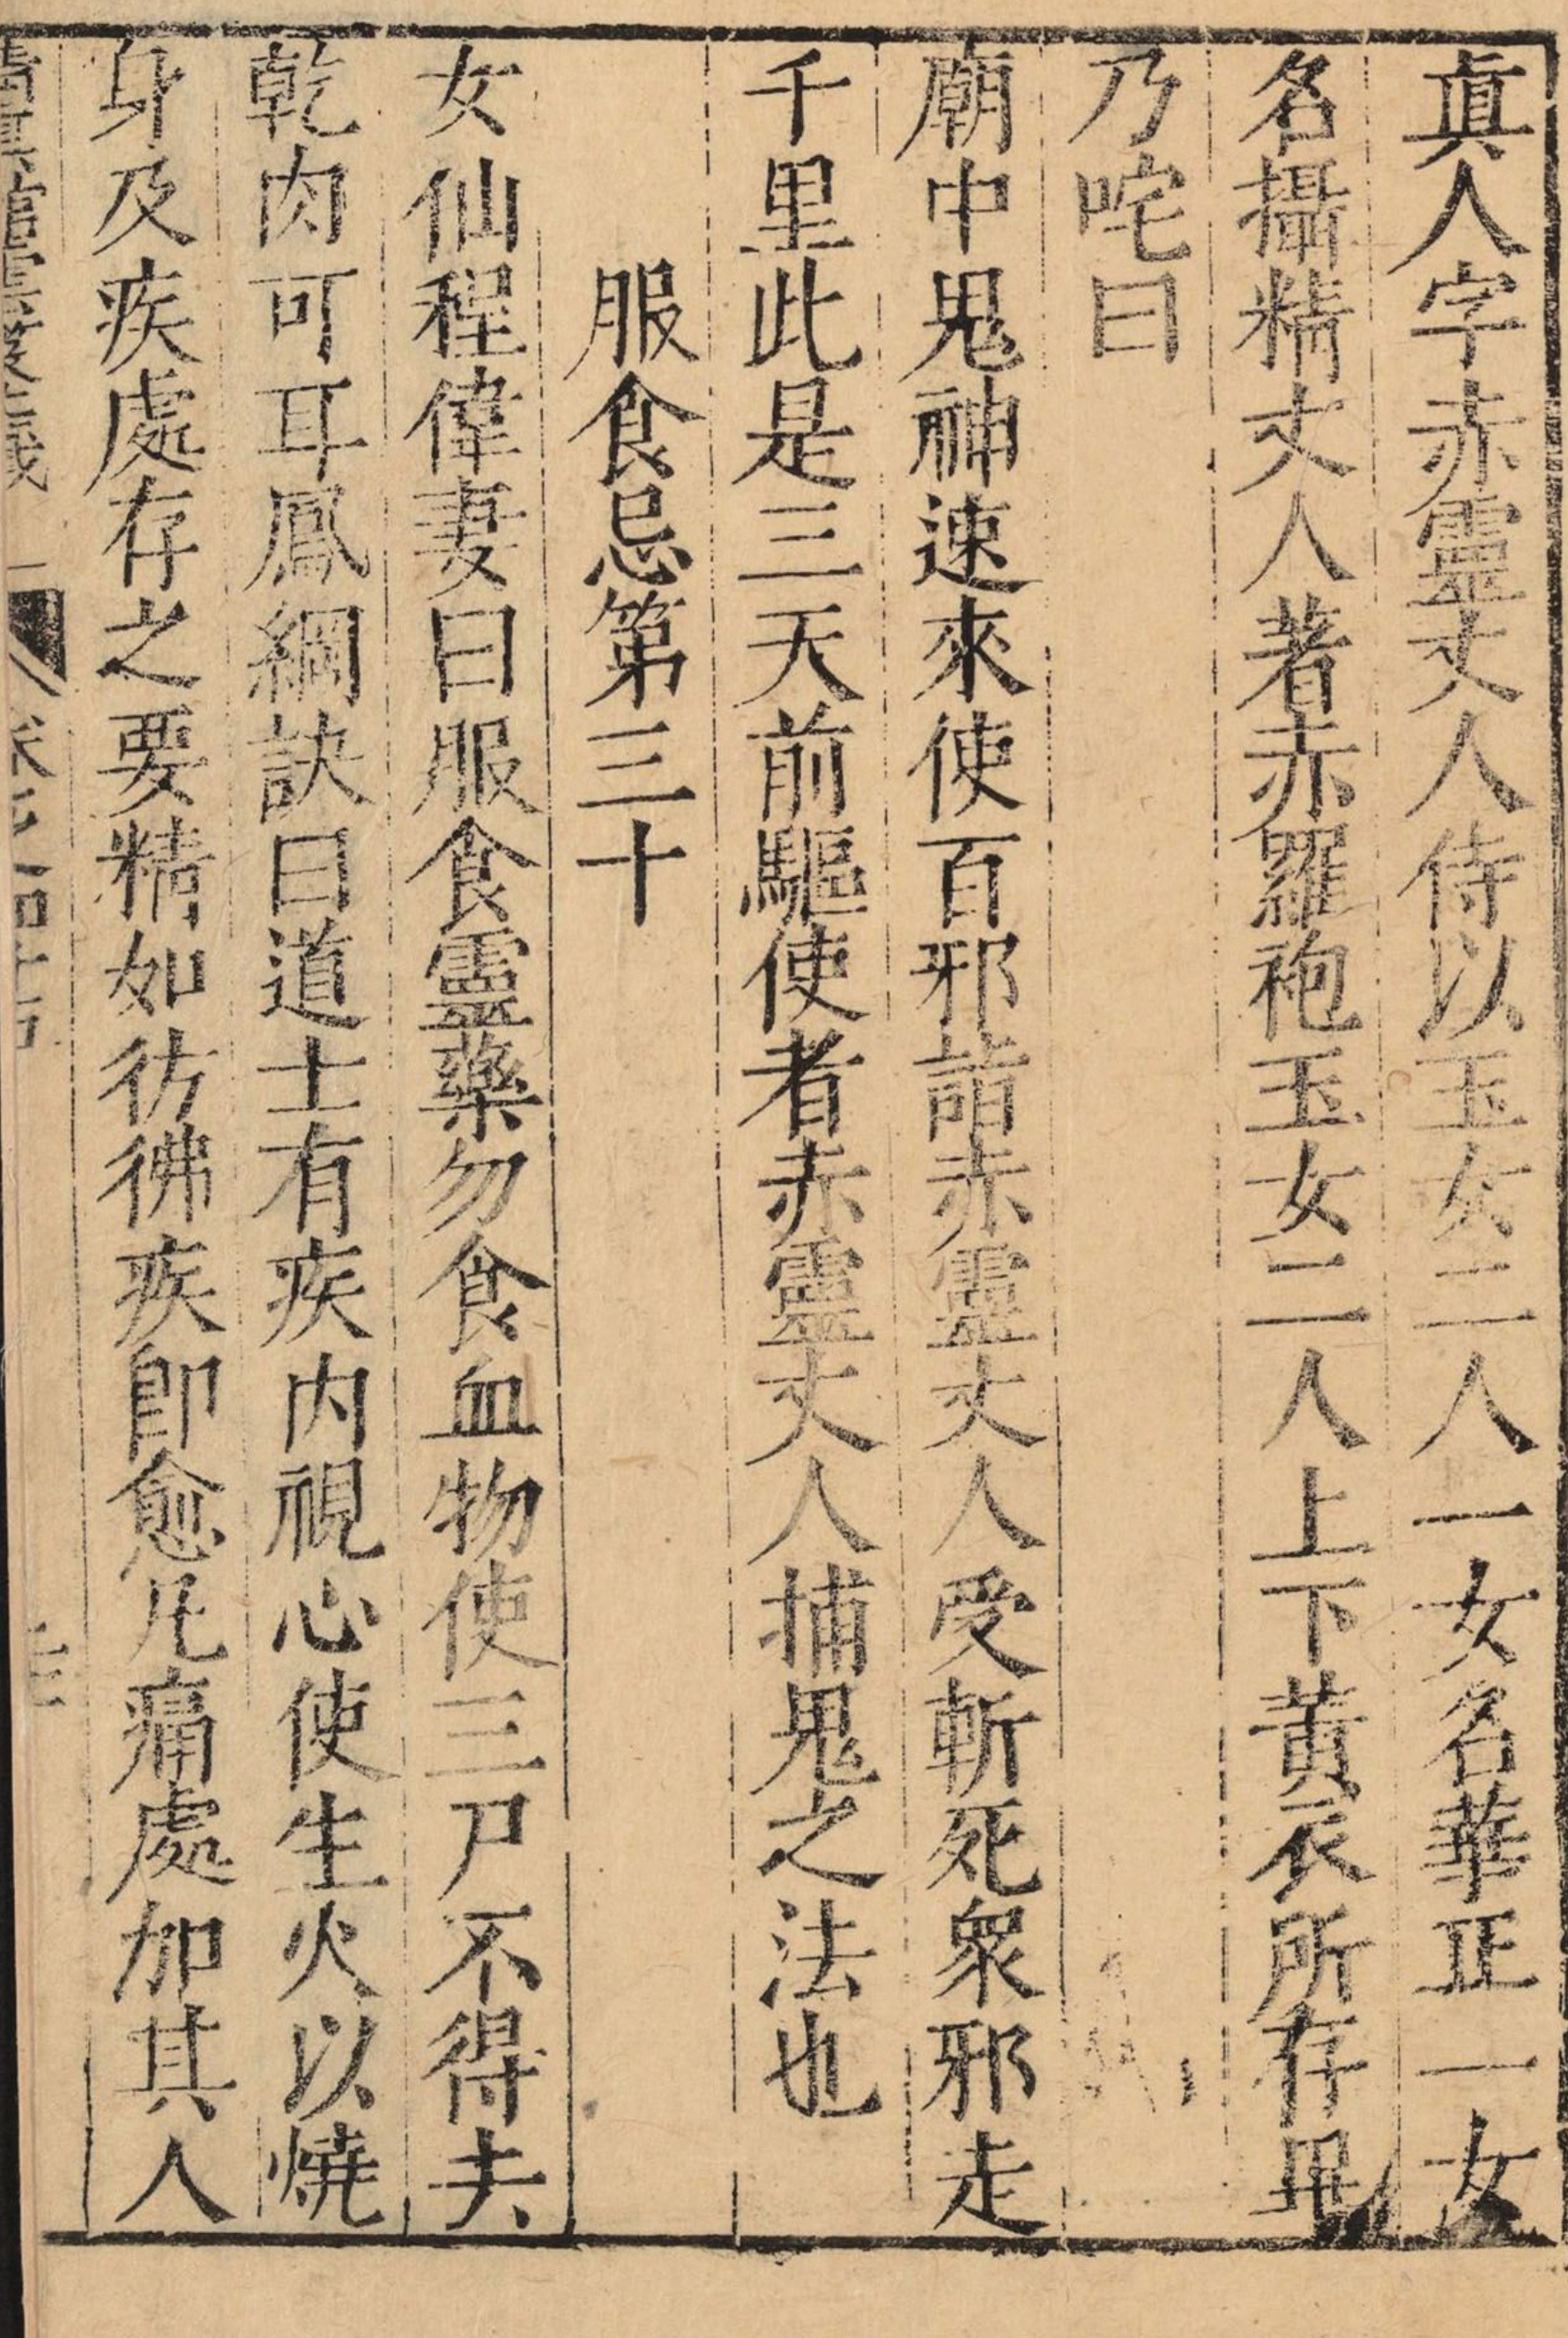 眞人字赤靈丈人侍以玉女二人一女名華正一女
名攝精丈人著赤羅袍玉女二人上下黃衣所存畢
乃咤曰
廟中鬼神速來使百邪詣赤靈丈人受斬死衆邪走
千里此是三天前驅使者赤靈丈人捕鬼之法也
服食忌第三十
女仙程偉妻曰服食靈藥勿食血物使三尸不得去
乾肉可耳鳳綱訣曰道士有疾內視心使生火以燒
身及疾處存之要精如彷彿疾卽愈凡痛處加其人